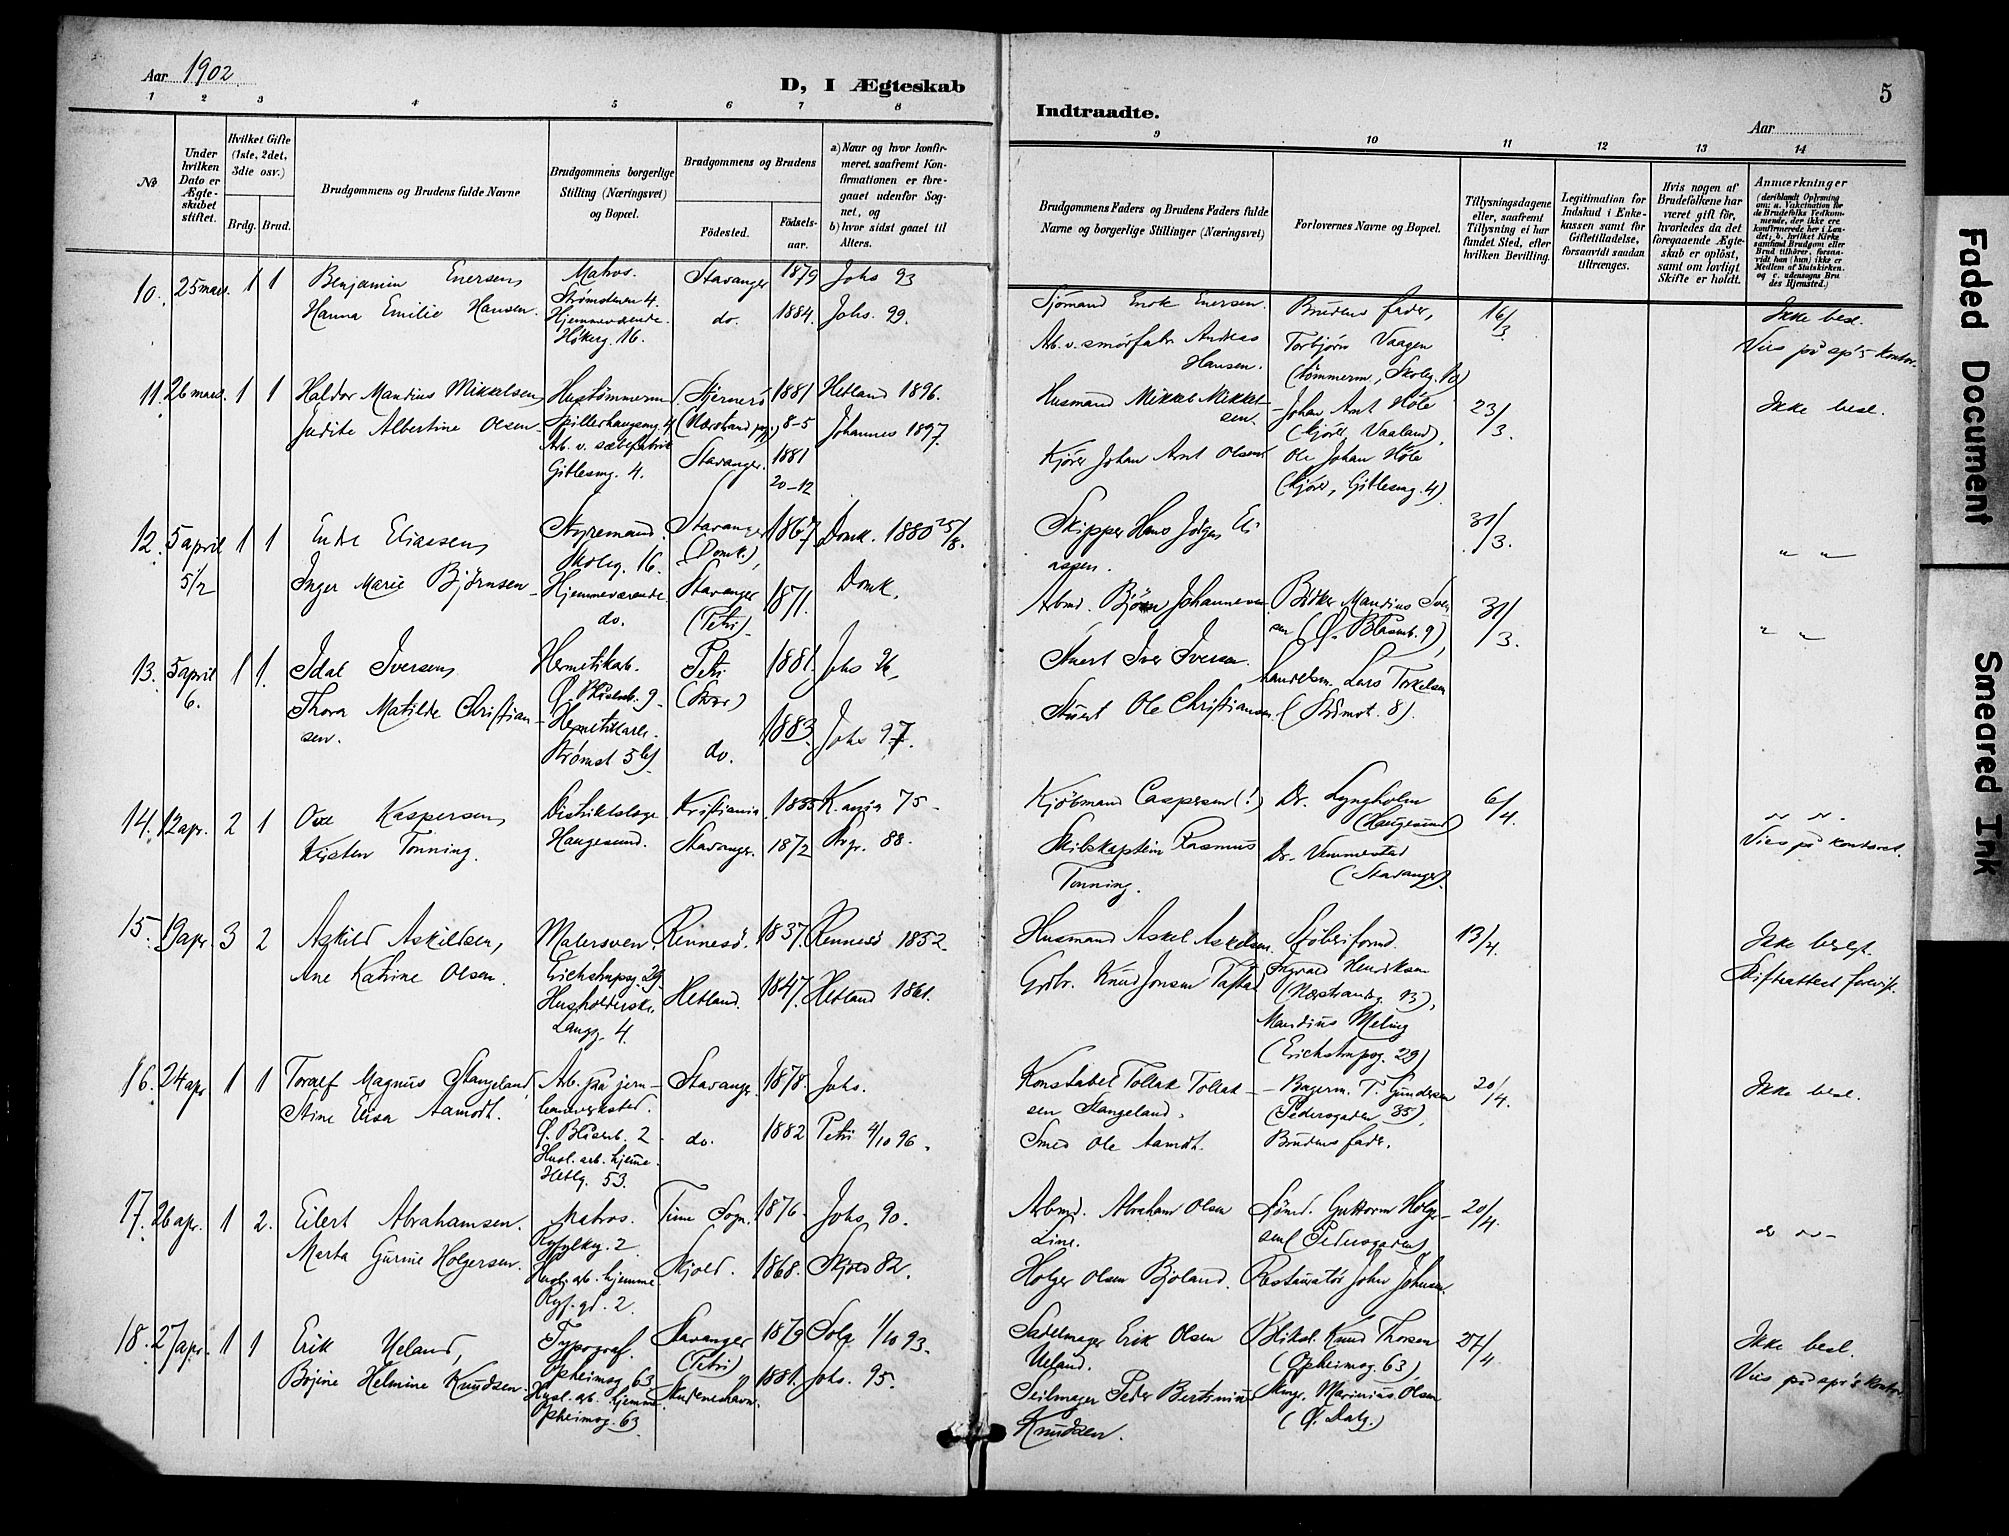 Aar 1902
D, I Ægteskab
Indtraadte.
5
Aar
1 2 3 4 5 6 7 8 9 10 11 12 13 14
No
Under hvilken Dato er Ægteskabet stiftet.
Hvilket Gifte (1ste, 2det, 3die osv.)
Brdg. Brud.
Brudgommens og Brudens fulde Navne
Brudgommens borgerlige Stilling (Næringsvei) og Bopæl.
Brudgommens og Brudens
Födested. Födsels-aar.
a) Naar og hvor konfirmeret, saafremt Konfirmationen er foregaaet udenfor Sognet, og
b) hvor sidst gaaet til Alters.
Brudgommens Faders og Brudens Faders fulde Navne og borgerlige Stillinger (Næringsvei)
Forlovernes Navne og Bopæl.
Tillysningsdagene eller, saafremt Tillysning ei har fundet Sted, efter hvilken Bevilling.
Legitimation for Indskud i Enkekassen samt for Giftetilladelse, forsaavidt saadan tiltrænges.
Hvis nogen af Brudefolkene har været gift för, hvorledes da det foregaaende Ægteskab er oplöst, samt om lovligt Skifte er holdt.
Anmærkninger
10. 25 mars. 1 1 Benjamin Enersen, Matros. Stavanger 1879 Johs 93
Hanna Emilie Hansen. Hjemmeværende. do. 1884. Johs. 99.
16.
Sjömand Enok Enersen. Brudens fader, 16/3 Ikke besl.
Arb. v. smörfabr Andreas Hansen. Torbjörn Vaagen (tömmerm, Skoleg. Vies på sp's kontor.
11. 26 mars. 1 1 Haldor Mandius Mikkelsen, Hustömmerm 1881 8-5 Hetland 1896.
Judite Albertine Olsen. Arb. v. sæbefabrik 4. Stavanger. 1881 20-12 Johannes 1897.
Husmand Mikkel Mikkelsen. Johan Arnt Höle (kjörer, Vaaland), 23/3. Ikke besl.
Kjörer Johan Arnt Olsen Ole Johan Höle (kjörer, 4)
12. 5 april 5 1/2 1 1 Eliassen, Styremand. Skoleg. 16. Stavanger (Domk.), 1867 Domk. 1880
Inger Marie Björnsen. Hjemmeværende do. Stavanger (Petri). 1871. Domk.
Skipper Hans Jörgen Eliassen. 31/3. " "
Arbmd. Björn Johannesen Bödker Mandius Svensen (Ø. Blaasenb. 9), 31/3. " "
13. 5 april 6. 1 1. Idal Iversen, Hermetikarb. Ø. Blaasenb. 9. Petri 1881. Johs 96,
Thora Matilde Christiansen. Hermetikarb. do. 1883. Johs 97.
Stuert Iver Iversen. Handelsm. Lars Torkelsen
Stuert Ole Christiansen. 8).
14. 12 apr. 2 1 Ove Kaspersen, Distriktslæge Haugesund. Kristiania. 1855 K.ania 75
Kirsten Tonning. Stavanger. 1872 88.
Kjöbmand Caspersen (!) Dr. Lyngholm (Haugesund) 6/4. " ".
Skibskaptein Rasmus Tonning. Dr. Vemmestad (Stavanger). Vies på kontoret.
15. 19 apr. 3 2 Askild Askildsen, Malersven. Erichstrupsg. 29. Rennesö. 1837. Rennesö 1852.
Ane Katrine Olsen. Husholderske. Langg. 4. Hetland. 1847. Hetland 1861.
Husmand Askel Askelsen. Ingvald Henriksen (Nordstrandsg. 13), 13/4. Ikke beslgt.
Grdbr. Knud Jonsen Tastad Mandius Meling (Erichstrupsg. 29) Skifteattest forevist.
16. 24 apr 1 1 Toralf Magnus Stangeland, Arb. paa jernbaneverksted. Ø. Blaasenb. 2 Stavanger 1878. Johs.
Stine Elisa Aamodt. Husl. arb. hjemme. Hetlg. 53. do. 1882 Petri 4/10 96.
Konstabel Tollak Tollaksen Stangeland. Bagerm. T. Gundersen (Pedersgaden 35), 20/4. Ikke besl.
Smed Ole Aamdt. Brudens fader.
17. 26 apr. 1 2. Eilert Abrahamsen. Matros. Ryfylkeg. 2. Time Sogn. 1876. Johs 90.
Marta Gurine Holgersen. Husl. arb. hjemme Ryf. gd. 2. Skjold. 1868. Skjold 82.
Arbmd. Abraham Olsen Line. Guttorm Holgersen (Pedersgaden), 20/4.
Holger Olsen Bjoland. Restauratör John Johnsen.
18. 27 apr. 1 1 Erik Ueland, Typograf. Opheimsg 63 Stavanger (Petri) 1879 Sola 1/10 93.
Böjine Helmine Knudsen. Husl. arb. hjemme. Opheimsg. 63. Skudeneshavn. 1881. Johs. 95.
Sadelmager Erik Olsen Ueland. Bliksl. Knud Thorsen (Opheimsg. 63), 27/4 Ikke besl.
Seilmager Peder Bertinius Knudsen. Marinius Olsen (Ø. Dalg.) Vies på spr's kontor
Faded Document
Smeared Ink